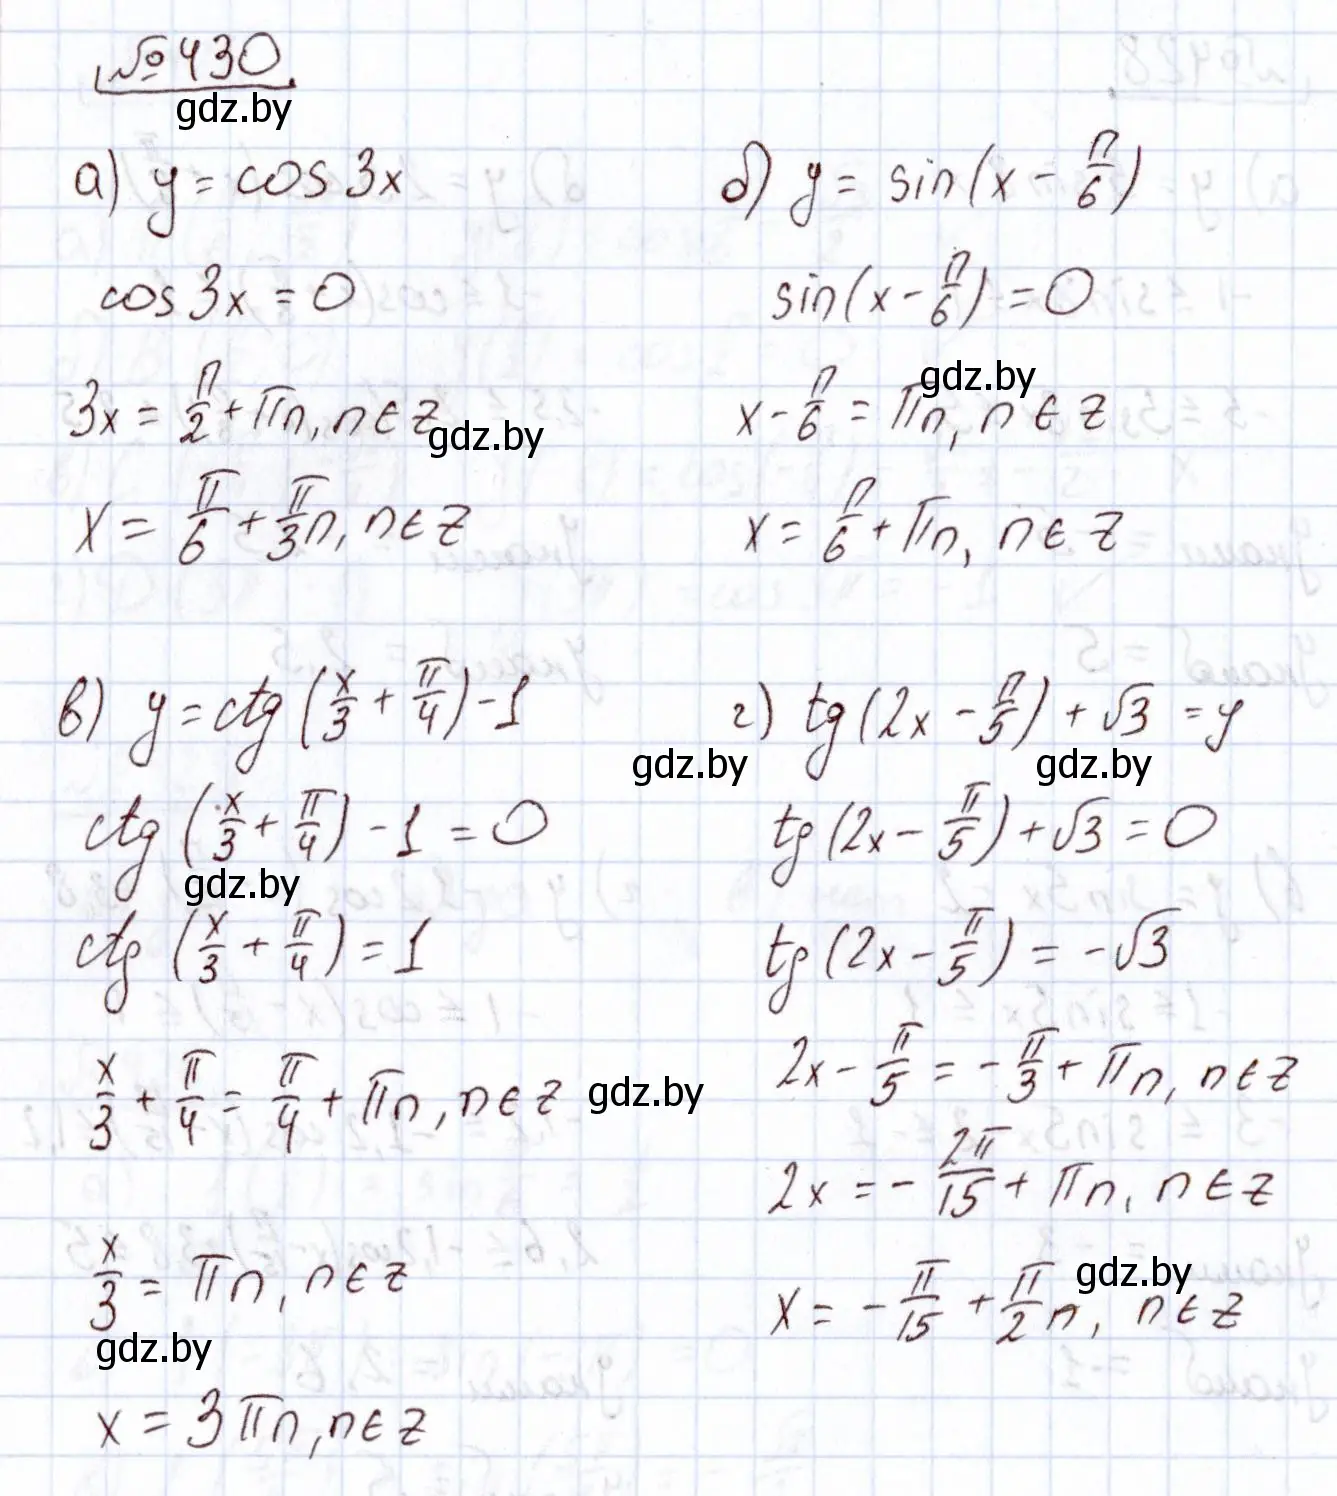 №430
gdz.by
а) y = cos 3x
cos 3x = 0
3x = π/2 + πn, n ∈ Z
gdz.by
x = π/6 + π/3 n, n ∈ Z
б) y = sin(x − π/6)
sin(x − π/6) = 0
gdz.by
x − π/6 = πn, n ∈ Z
x = π/6 + πn, n ∈ Z
в) y = ctg(x/3 + π/4) − 1
gdz.by
ctg(x/3 + π/4) − 1 = 0
gdz.by
ctg(x/3 + π/4) = 1
x/3 + π/4 = π/4 + πn, n ∈ Z
gdz.by
x/3 = πn, n ∈ Z
gdz.by
x = 3πn, n ∈ Z
г) tg(2x − π/5) + √3 = y
gdz.by
tg(2x − π/5) + √3 = 0
tg(2x − π/5) = −√3
2x − π/5 = −π/3 + πn, n ∈ Z
2x = −2π/15 + πn, n ∈ Z
gdz.by
x = −π/15 + π/2 n, n ∈ Z